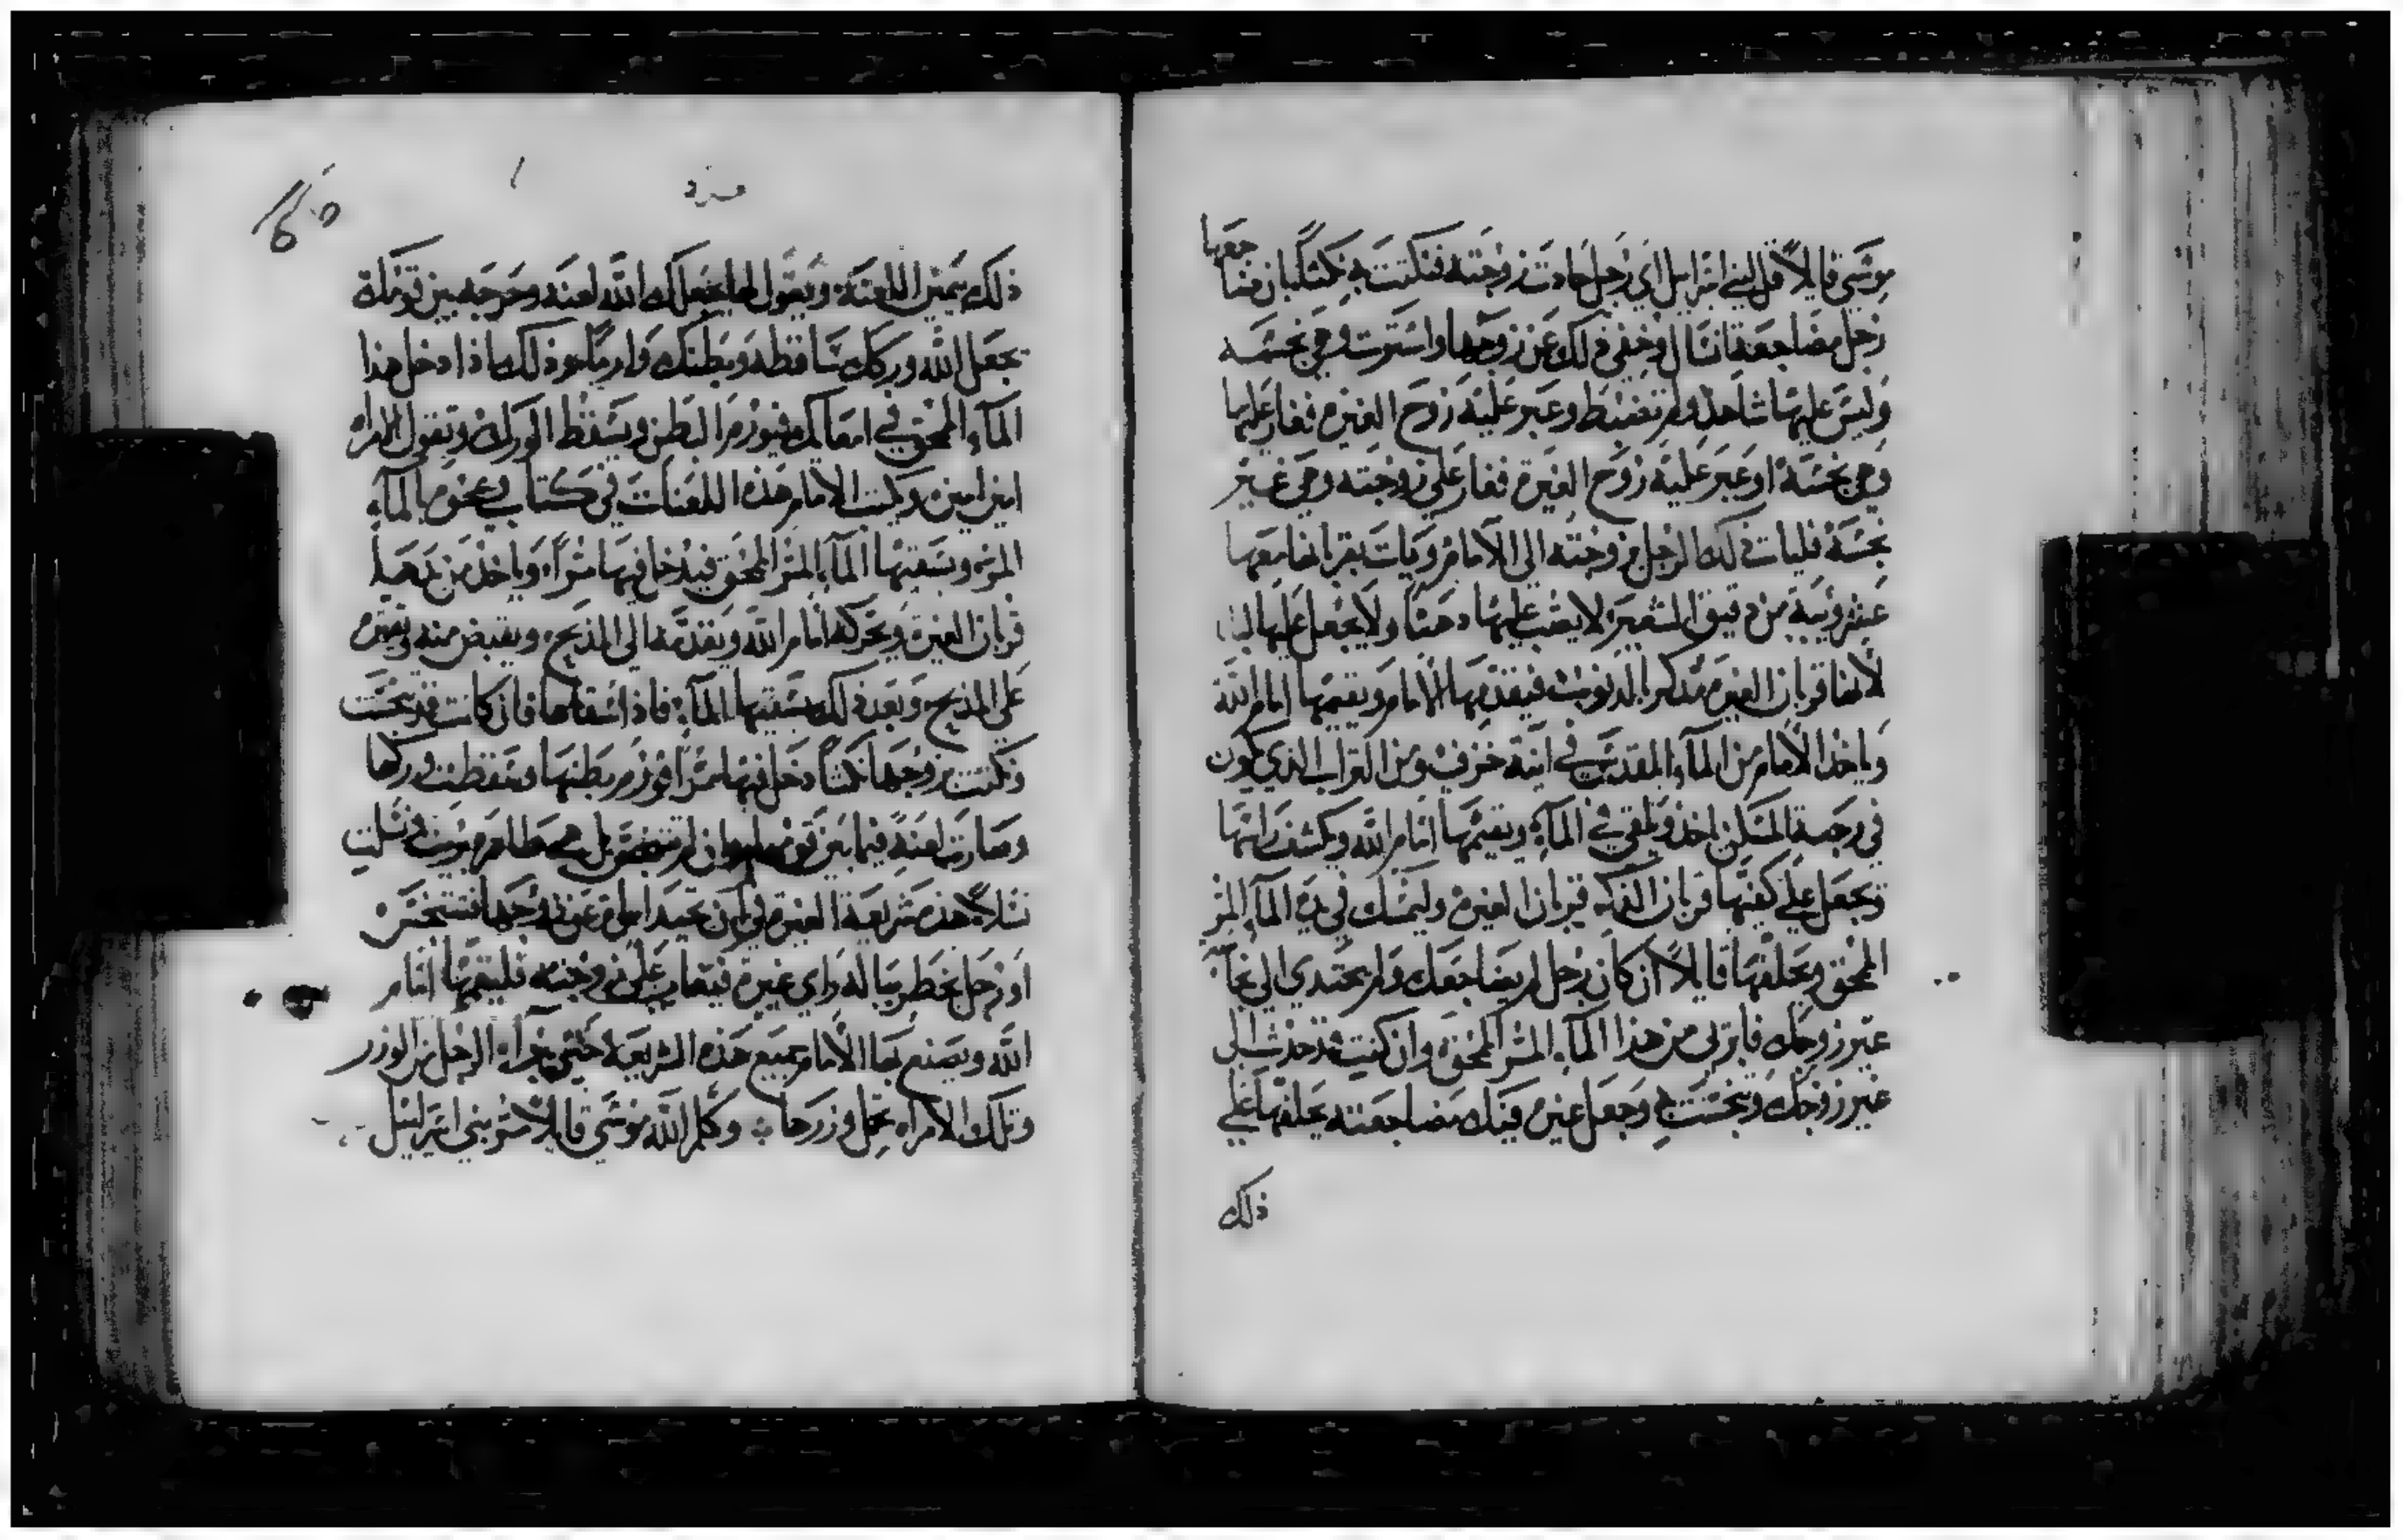 موسي قايلاً قل لبني اسراييل اي رجل حادت زوجته فنكتت به نكثًا بان ضاجعها
رجل مضاجعة انسال وخفي ذلك عن زوجها واستترت وهي نجسة
وليس عليها شاهد ولم تضبط وعبر عليه روح الغيرة فغار عليها
وهي نجسة او عبر عليه روح الغيرة فغار علي زوجته وهي غير
نجسة فليات ذلك الرجل بزوجته الي الامام ويات بقربانها معها
عشر ويبة من دقيق الشعير لا يصب عليها دهنًا ولا يجعل عليها لبانا
لانها قربان الغيرة مذكر بالدنوب فيقدمها الامام ويقيمها امام الله
وياخذ الامام من المآء المقدس في انية خزف ومن التراب الذي يكون
في المسكن ياخذ ويلقي في المآء ويقيمها امام الله ويكشف راسها
ويجعل علي كفيها قربان الذكر قربان الغيرة وليمسك في يده المآء المر
الممحق ويحلفها قايلاً ان كان رجل لم يضاجعك ولم تحتدي الي نجاسة
غير زوجك فابري من هذا المآء المر الممحق وان كنت قد حدت الي
غير زوجك وتنجستي وجعل غيره فيك مضاجعته يحلفها علي
ذلك
ذلك يمين اللعنة ويقول لها يجعلك الله لعنه وحرجه بين قومك
يجعل الله وركك ساقطه وبطنك وارمه وذلك اذا دخل هذا
المآء الممحق في امعايك فيورم البطن ويسقط الورك وتقول الامراه
امين امين ويكتب الامام هذه اللعنات في كتاب ويمحوها بالمآء
المر ويسقيها المآء المر الممحق فيدخل فيها مرًا وياخذ من يدها
قربان الغيرة ويحركه امام الله ويقدمه الي المذبح ويقبض منه ويقتره
علي المذبح وبعد ذلك يسقيها المآء فاذا اسقاها فان كانت قد نجست
ونكتت بزوجها نكثًا دخل فيها مرًا فورم بطنها وسقطت وركها
وصارت لعنة فيما بين قومها وان لم تتنجس بل هي طاهره بريت ونسلت
نسلاً هذه شريعة الغيرة في ان تحيد امراة عن زوجها فتتنجس
او رجل يخطر بباله راي غيرة فيغار علي زوجته فليقيمها امام
الله ويصنع بها الامام جميع هذه الشريعة حتي يبرآء الرجل من الوزر
وتلك الامراه تحمل وزرها وكلم الله موسي قايلاً مر بني اسراييل